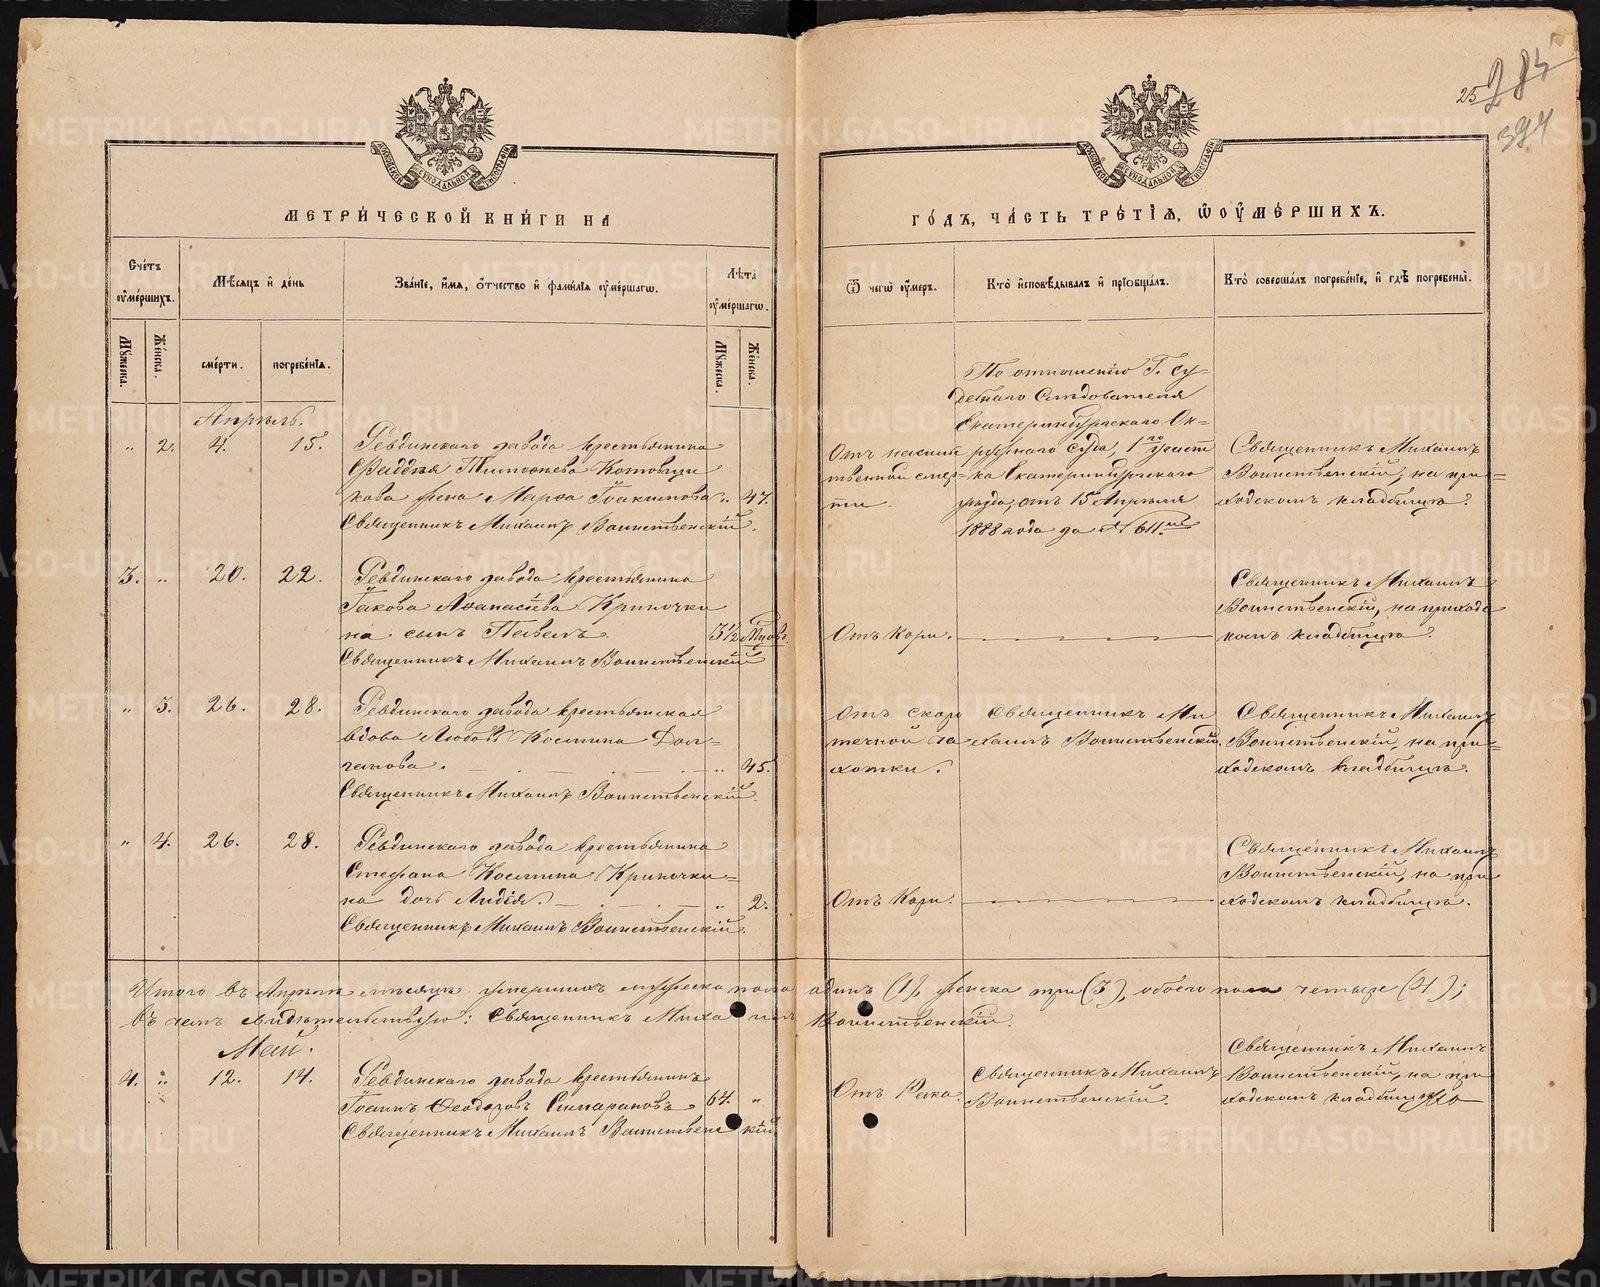 25
285
394
МЕТРИ́ЧЕСКОЙ КНИ́ГИ НА
ГО́ДЪ, ЧА́СТЬ ТРЕ́ТІѦ, Ѿ ОУ҆МЕ́РШИХЪ.
Сче́тъ оу҆ме́ршихъ.
Мѣ́сяцъ и҆ де́нь
Зва́ніе, и҆́мя, о҆́тчество и҆ фами́лія оу҆ме́ршагѡ.
Лѣ́та оу҆ме́ршагѡ.
Ѿ чегѡ̀ оу҆́меръ.
Кто̀ и҆сповѣ́дывалъ и҆ пріобща́лъ.
Кто̀ соверша́лъ погребе́ніе, и҆ гдѣ̀ погребены̀.
Мꙋ́жеска.
Же́нска.
сме́рти.
погребе́нія.
Мꙋ́жеска.
Же́нска.
Апрѣль.
„ 2. 4. 15. Ревдинскаго завода крестьянина
Фаддея Тимофеева Котовщи
кова жена Марѳа Іоакимова „ 47.
Священникъ Михаилъ Воинственскій.
Отъ насиль
ственной смер-
ти.
По отношенію Г. Су-
дебнаго Слѣдователя
Екатеринбургскаго Ок-
ружнаго Суда, 1го участ
ка Екатеринбургскаго
уѣзда, отъ 15 Апрѣля
1888 года за № 611мъ
Священникъ Михаилъ
Воинственскій, на при=
ходскомъ кладбищѣ.
3. „ 20. 22. Ревдинскаго завода крестьянина
Іакова Аѳанасіева Криночки
на сынъ Павелъ. 3½
Священникъ Михаилъ Воинственскій
Отъ Кори.
Священникъ Михаилъ
Воинственскій, на приход
комъ кладбищѣ.
„ 3. 26. 28. Ревдинскаго завода крестьянская
вдова Любовь Космина Дол-
ганова. „ 45.
Священникъ Михаилъ Воинственскій.
Отъ скоро
течной ча
хотки.
Священникъ Ми
хаилъ Воинственскій.
Священникъ Михаилъ
Воинственскій, на при=
ходскомъ кладбищѣ.
„ 4. 26. 28. Ревдинскаго завода крестьянина
Стефана Космина Криночки=
на дочь Лидія. „ 2.
Священникъ Михаилъ Воинственскій.
Отъ Кори.
Священникъ Михаилъ
Воинственскій, на при
ходскомъ кладбищѣ.
Итого въ Апрѣлѣ мѣсяцѣ умершихъ мужеска пола одинъ (1), женска три (3), обоего пола четыре (4);
въ чемъ свидѣтельствую: Священникъ Михаилъ Воинственскій.
Май.
4. „ 12. 14. Ревдинскаго завода крестьянинъ
Іоаннъ Ѳеодоровъ 64. „
Священникъ Михаилъ Воинственскій
Отъ Рака.
Священникъ Михаилъ
Воинственскій.
Священникъ Михаилъ
Воинственскій, на при
ходскомъ кладбищѣ
METRIKI.GASO-URAL.RU